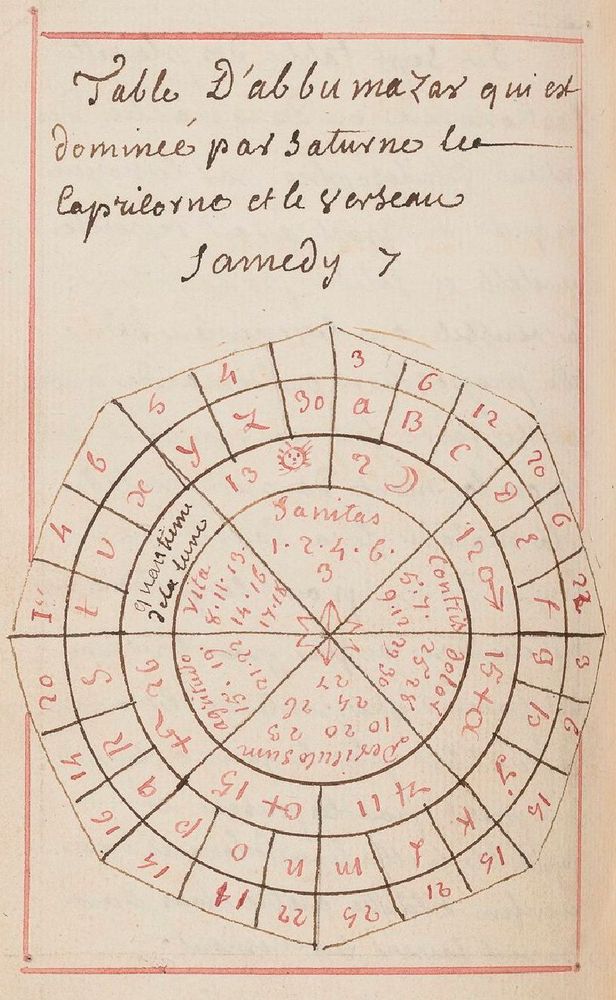 Table D'abbumazar qui est
dominée par Saturne le
Capricorne et le verseau
Samedy 7
3 6 12 20 6 22 3 6 15 15 21 25 22 11 14 16 14 20 1 4 6 5 4
30 a B C D E f g h J K L m n o p q R S t v x y Z
13 2 120 15 11 15 26
quantieme
de la lune
Sanitas
1 · 2 · 4 · 6 ·
3
Vita
8 · 11 · 13 ·
14 · 16
17 · 18
dolor
5 · 7 ·
9 · 12
25 · 28
29 · 30
agritudo
15 · 19 ·
21 · 22
Periculosum
10 20 23
24 · 26
27